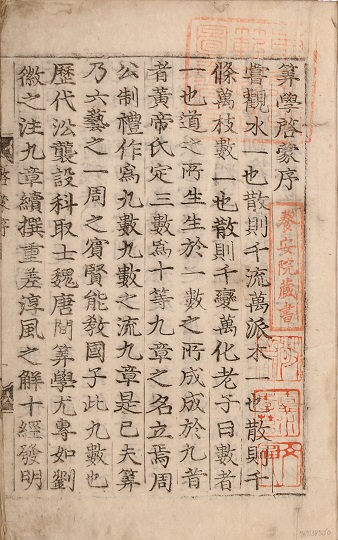 算學啓蒙序
嘗觀水一也散則千流萬派木一也散則千
條萬枝數一也散則千變萬化老子曰數者
一也道之所生生於一數之所成成於九昔
者黃帝氏定三數爲十等九章之名立焉周
公制禮作爲九數九數之流九章是已夫筭
乃六藝之一周之賓賢能敎國子此九數也
歷代㳂襲設科取士魏唐間筭學尤專如劉
徽之注九章續撰重差淳風之解十經發明
養安院藏書